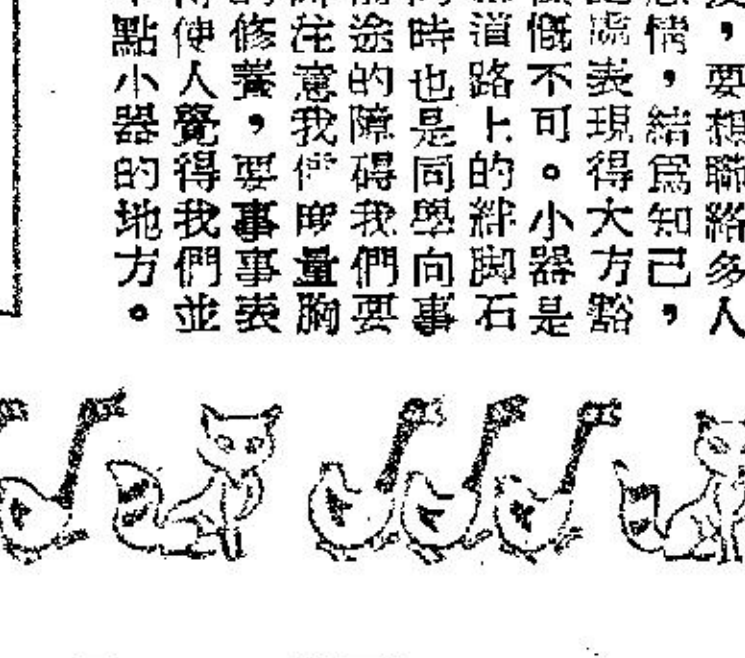 ，要想聯絡多人
情，結爲知己，
表現得大方豁
慨不可。小器是
道路上的絆脚石
時也是同學向事
途的障碍我們要
注意我們度量胸
修養，要事事表
使人覺得我們並
點小器的地方。